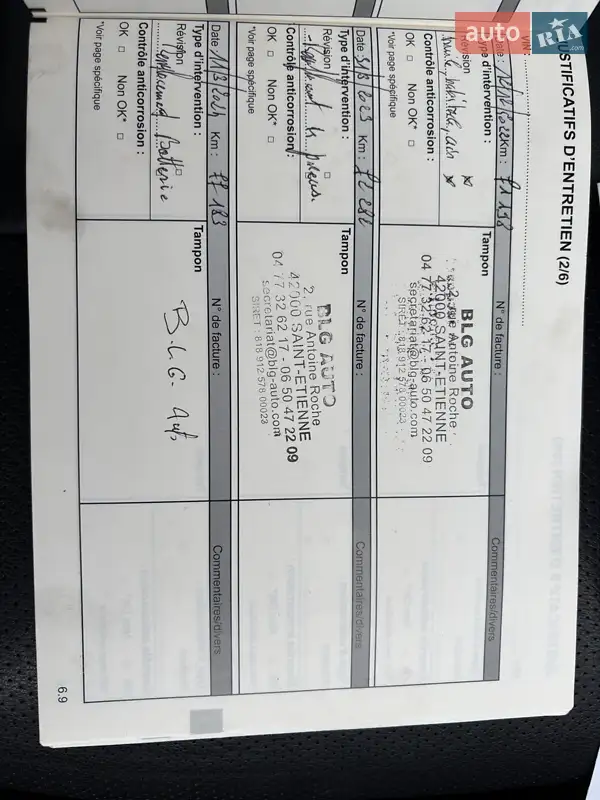 auto RIA.com
JUSTIFICATIFS D'ENTRETIEN (2/6)
VIN :
Date : Km : 71 158
Type d'intervention :
Révision
Contrôle anticorrosion :
OK □ Non OK* □
*Voir page spécifique
Tampon
BLG AUTO
2, rue Antoine Roche
42000 SAINT-ETIENNE
04 77 32 62 17 - 06 50 47 22 09
secretariat@blg-auto.com
SIRET : 818 912 578 00023
N° de facture :
Commentaires/divers
Date : Km : 72 282
Type d'intervention :
Révision □
Contrôle anticorrosion :
OK □ Non OK* □
*Voir page spécifique
Tampon
BLG AUTO
2, rue Antoine Roche
42000 SAINT-ETIENNE
04 77 32 62 17 - 06 50 47 22 09
secretariat@blg-auto.com
SIRET : 818 912 578 00023
N° de facture :
Commentaires/divers
Date : 11/3/2024 Km : 77 183
Type d'intervention :
Révision □
Remplacement Batterie
Contrôle anticorrosion :
OK □ Non OK* □
*Voir page spécifique
Tampon
B.L.G. Aut.
N° de facture :
Commentaires/divers
6.9